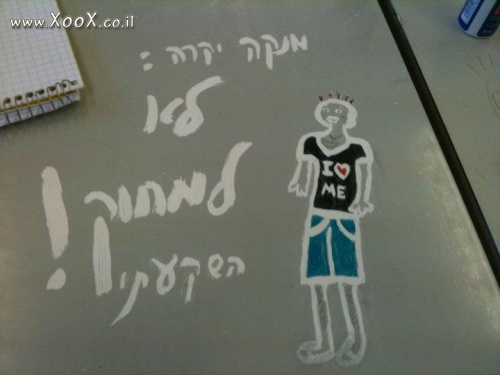 www.XooX.co.il
מנקה יקרה:
לא
למחוק!
השקעתי!
I ♥
ME